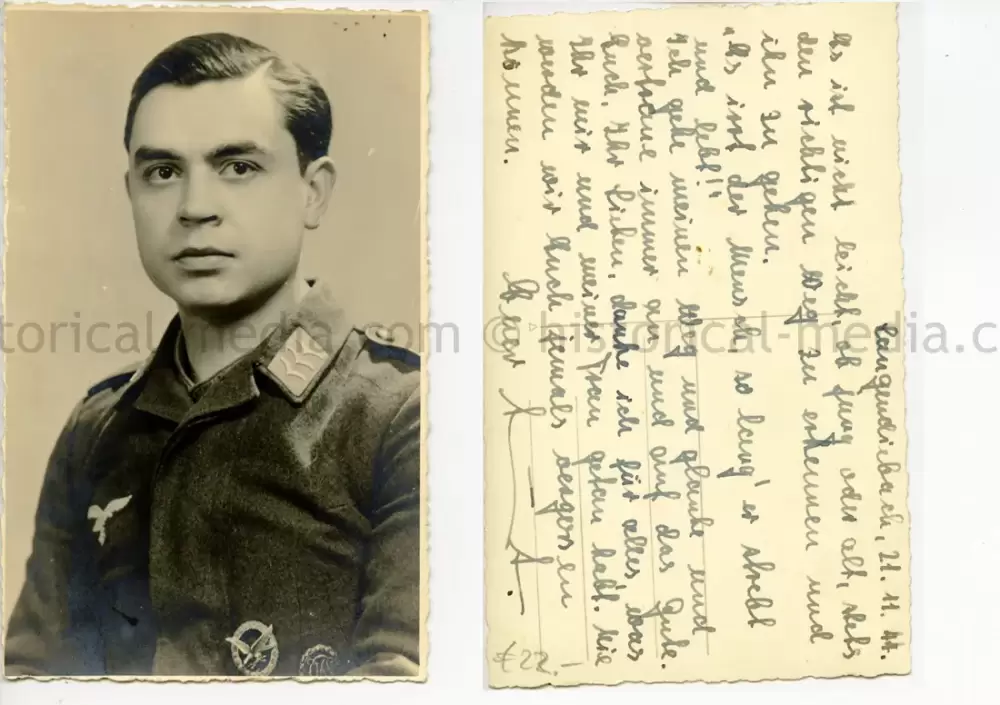 Langendiebach, 21. 11. 44.
Es ist nicht leicht, ob jung oder alt, stets
den richtigen Weg zu erkennen und
ihn zu gehen.
"Es irrt der Mensch, so lang' er strebt
und lebt!"
Ich gehe meinen Weg und glaube und
vertraue immer gern und auf das Gute.
Euch, Ihr Lieben, danke ich für alles, was
Ihr mir und meiner Frau getan habt. Nie
werden wir Euch jemals vergessen
können.
Euer
£ 22.-
torical-media.com © historical-media.c